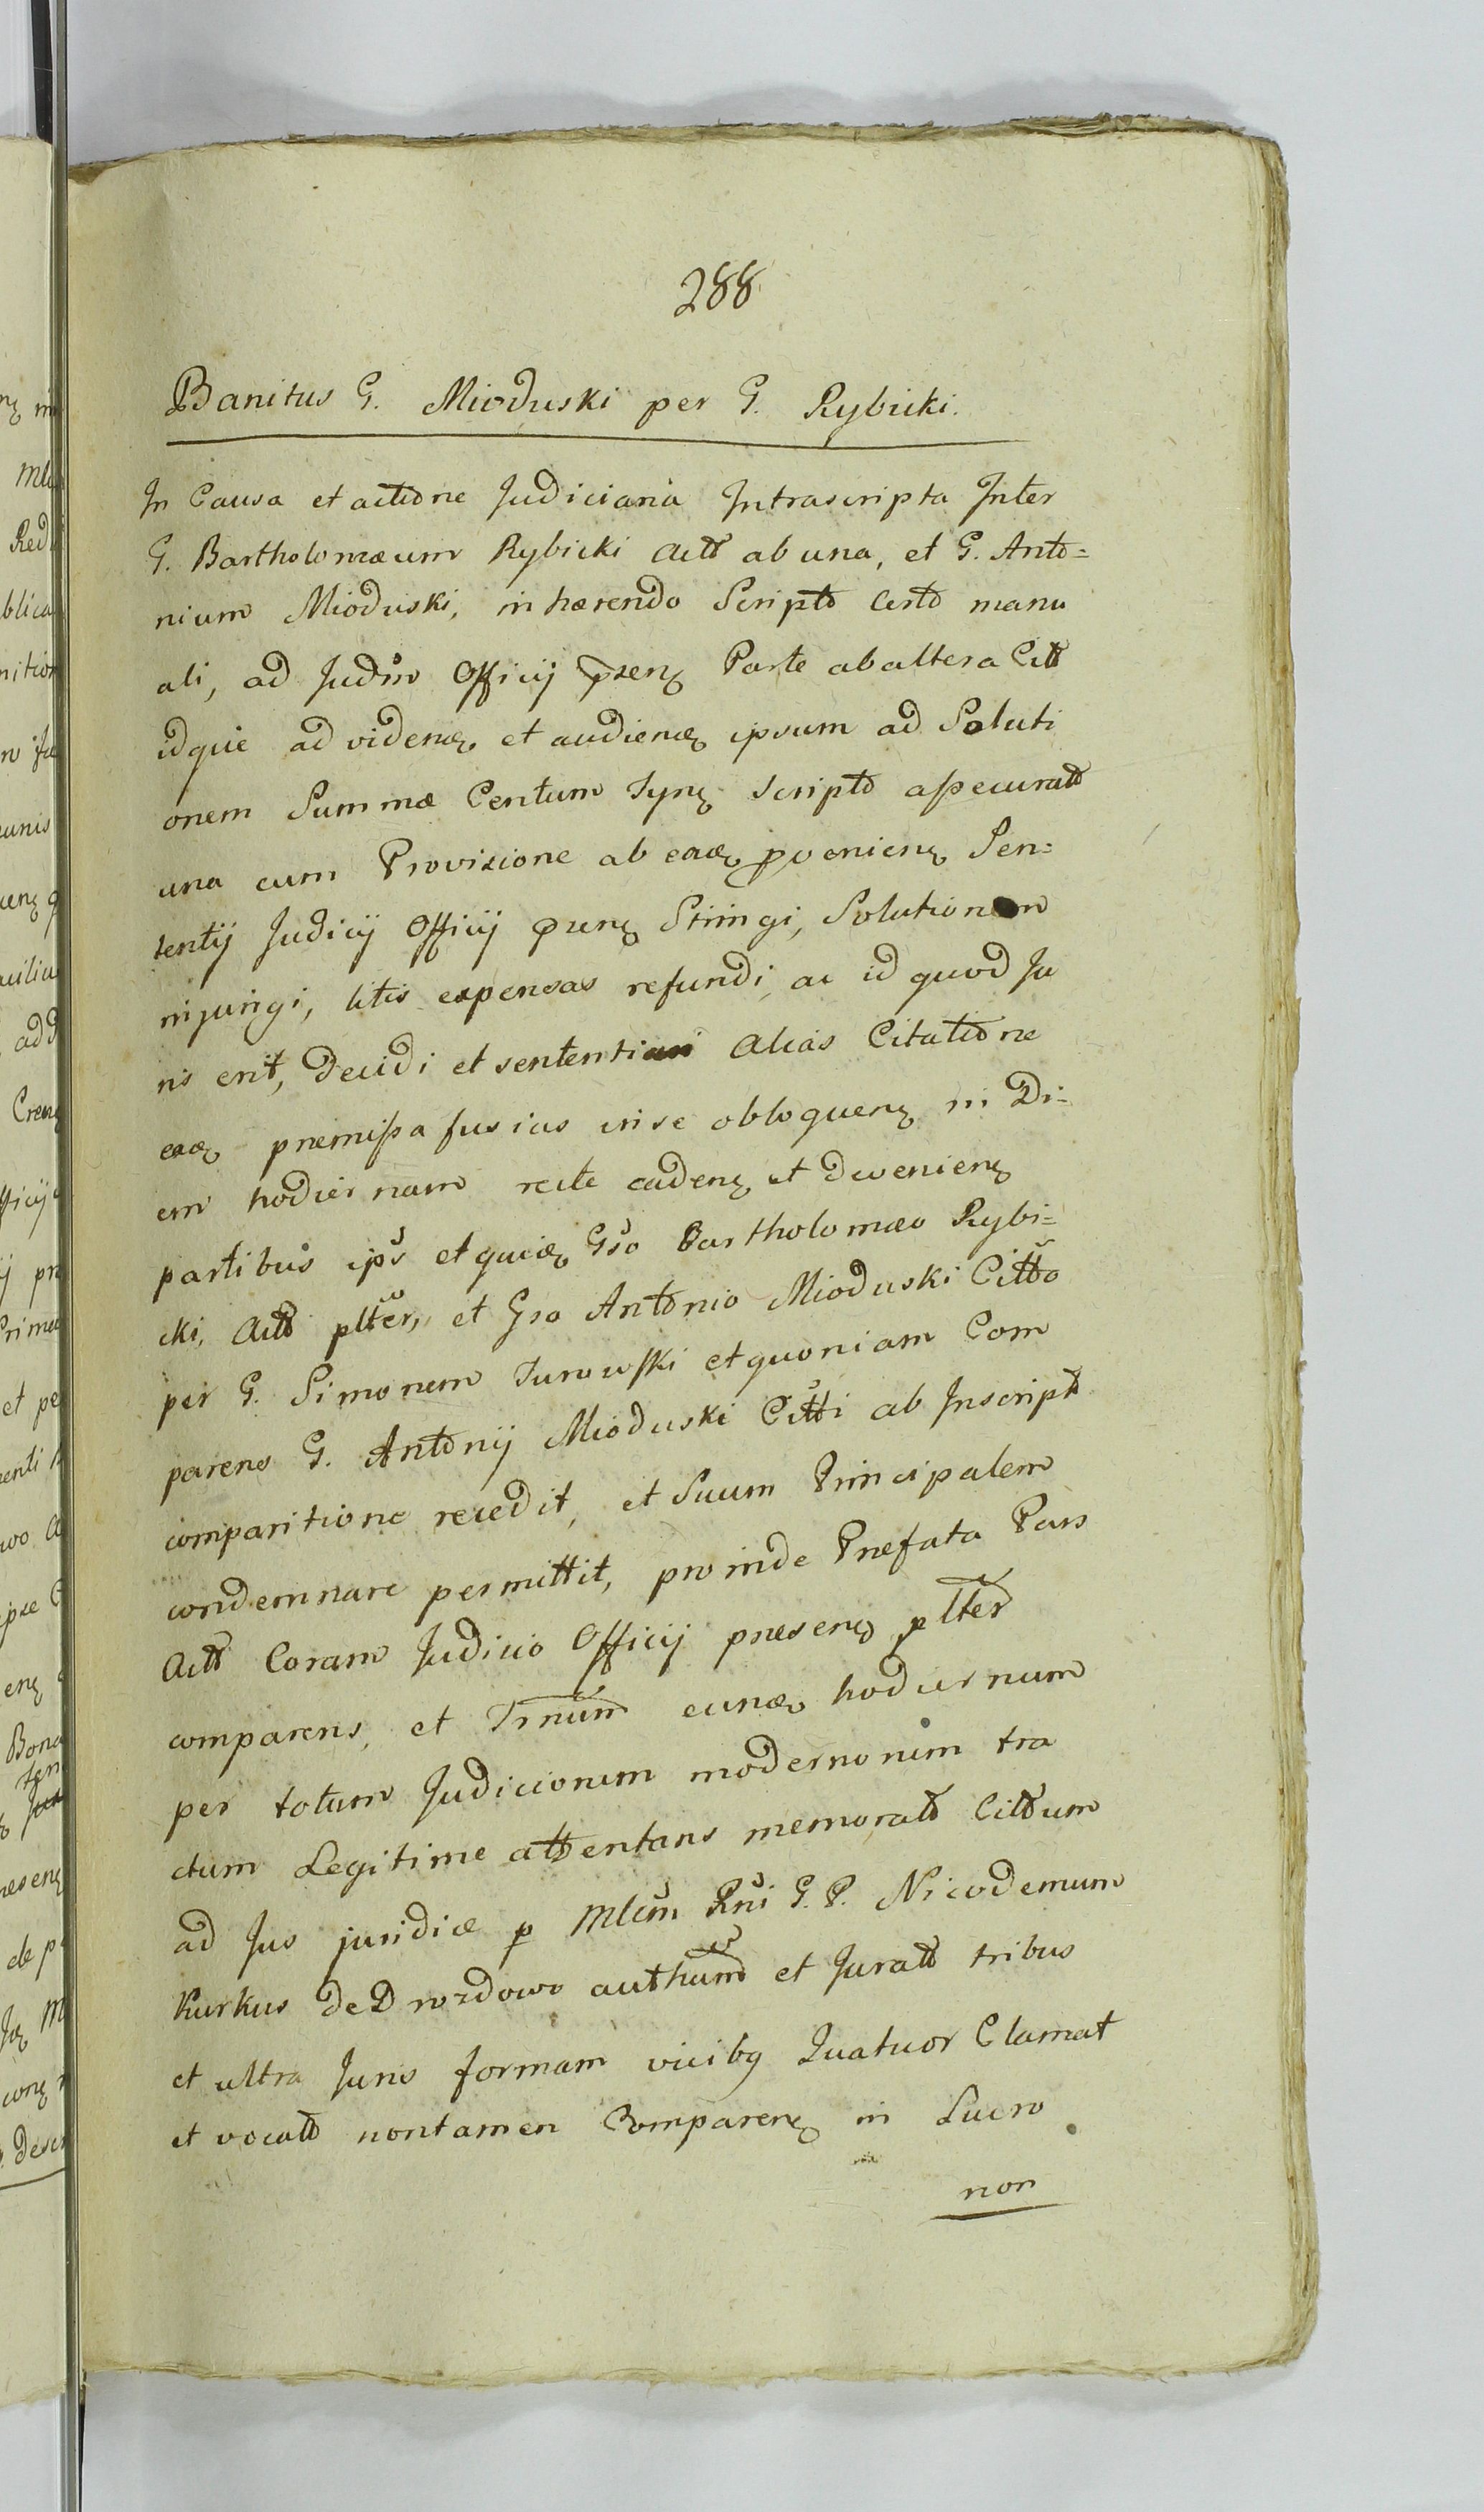 288
Banitus G. Mioduski per G. Rybicki.
In Causa et actione Judiciaria Intrascripta Inter
G. Bartholomæum Rybicki Actt ab una, et G. Anto=
nium Mioduski, inhærendo Scripto Certo manu
ali, ad Judm̃ Officij præsenꝫ Parte ab altera Citt
idque ad videnꝫ et audienꝫ ipsum ad Soluti
onem Summæ Centum Tynꝫ Scripto assecuratt
una cum Provisione ab eaꝫ pvenienꝫ Sen=
tentij Judicij Officij prænꝫ Stringi, Solutionem
injungi, litis expensas refundi, ac id quod Ju
ris erit, decidi et sententiari alias Citatione
eaꝫ præmissa fusius in se obloquenꝫ in Di=
em hodiernam recte cadenꝫ et devenienꝫ
partibus ips̃ et quiꝫ Gso Bartholomæo Rybi=
cki, Actt pltter, et Gso Antonio Mioduski Citto
per G. Simonem Turowski et quoniam Com
parens G. Antonij Mioduski Citti ab Inscript
comparitione recedit, et Suum Principalem
condemnare permittit, proinde Præfata Pars
Actt Coram Judicio Officij præsenꝫ pltter
comparens, et Trnum eunꝫ hodiernum
per totum Judiciorum modernorum tra
ctum Legitime attentans memoratt Cittum
ad Jus juridice p Mlcm̃ Rm̃i G. P. Nicodemum
Kurkus de Drozdowo authum et Juratt tribus
et ultra Juris formam vicibꝫ Quatuor Clamat
et vocatt non tamen Comparenꝫ in Lucro
non